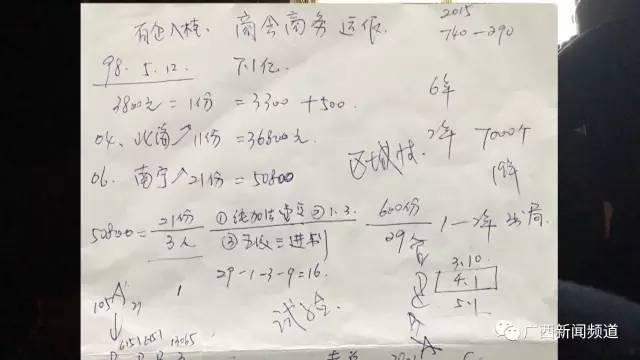 百企入桂. 商会商务运作.
2015
740-290
98.5.12. 下1亿.
3800元=1份 =3300+500.
6年
04、北海↗11份=36800元.
2年 7000个
区域性.
19年
06. 南宁↗21份=50800
50800= 21份/3人 ①纯加法 ②1.3. 600份/29 1-2年出局.
③五级三进制
29-1-3-9=16.
3.10
4.1
5.1
105 A 21
1
试验.
B C B A
13065
广西新闻频道